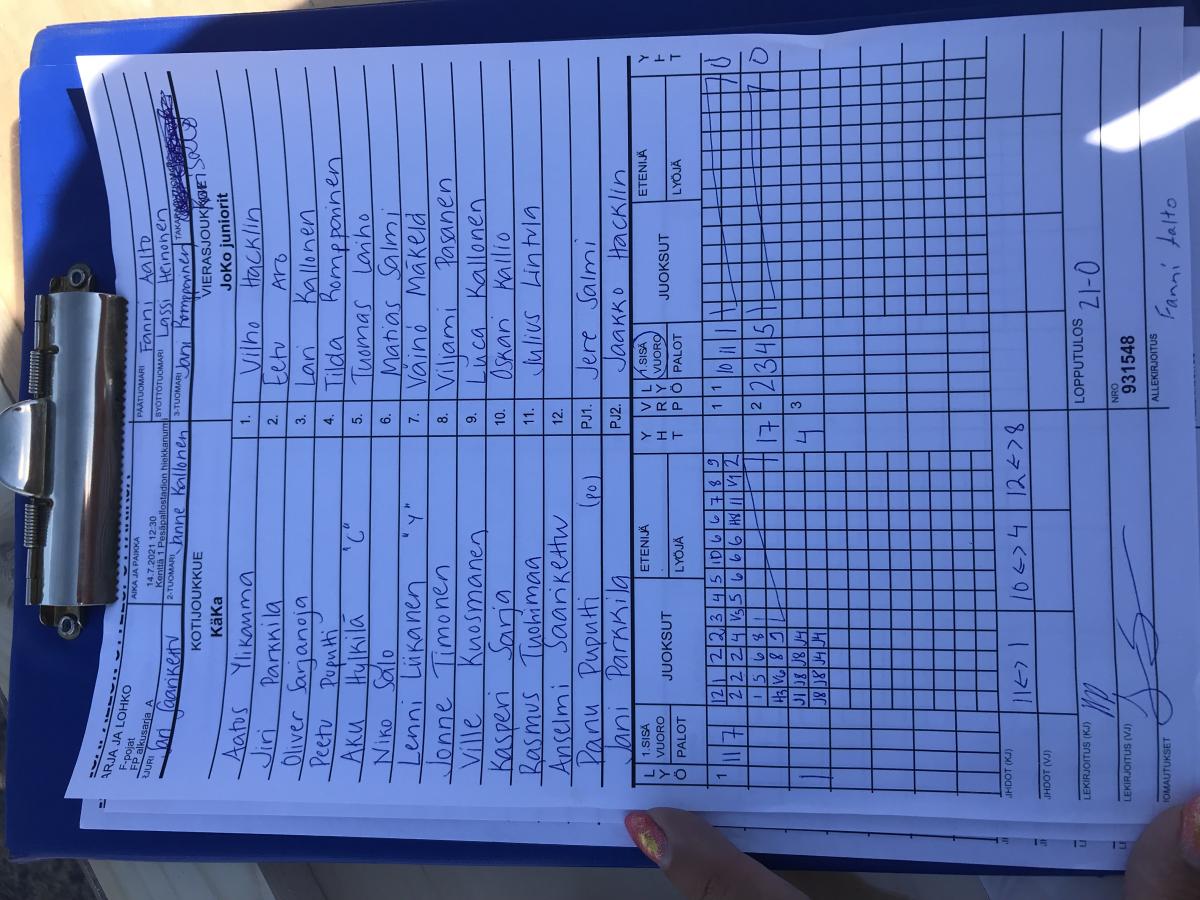 SARJA JA LOHKO
F-pojat
FP alkusarja A
AIKA JA PAIKKA
14.7.2021 12:30
Kenttä 1 Pesäpallostadion hiekkanurmi
PÄÄTUOMARI Fanni Aalto
SYÖTTÖTUOMARI Lassi Heinonen
2-TUOMARI Janne Kallonen
3-TUOMARI Jani Romppainen
KOTIJOUKKUE
KäKa
VIERASJOUKKUE
JoKo juniorit
Aatos Ylikauma 1. Vilho Hacklin
Jiri Parkkila 2. Eetu Aro
Oliver Sarjanoja 3. Lari Kallonen
Peetu Puputti 4. Tilda Romppainen
Aku Hylkilä "C" 5. Tuomas Laiho
Niko Salo 6. Matias Salmi
Lenni Liikanen "Y" 7. Väinö Mäkelä
Jonne Timonen 8. Viljami Pasanen
Ville Kuosmanen 9. Luca Kallonen
Kasperi Sarja 10. Oskari Kallio
Rasmus Tuohimaa 11. Julius Lintula
Anselmi Saariketty 12.
Panu Puputti (po) PJ1. Jere Salmi
Jani Parkkila PJ2. Jaakko Hacklin
LYÖ 1.SISÄ VUORO PALOT JUOKSUT ETENIJÄ LYÖJÄ YHT VRP LYÖ 1.SISÄ VUORO PALOT JUOKSUT ETENIJÄ LYÖJÄ YHT
1 11 7 12 1 2 2 3 4 5 10 6 6 7 8 9 1 1 10 11 1 0
2 2 2 4 V3 5 6 6 6 H8 11 V1 2
1 5 6 8 1 17 2 2 3 4 5 1 0
H3 V6 8 9
1 J1 J8 J8 J4 4 3
J8 J8 J4 J4
11<->1 10<->4 12<->8
LOPPUTULOS 21-0
NRO
931548
ALLEKIRJOITUS Fanni Aalto